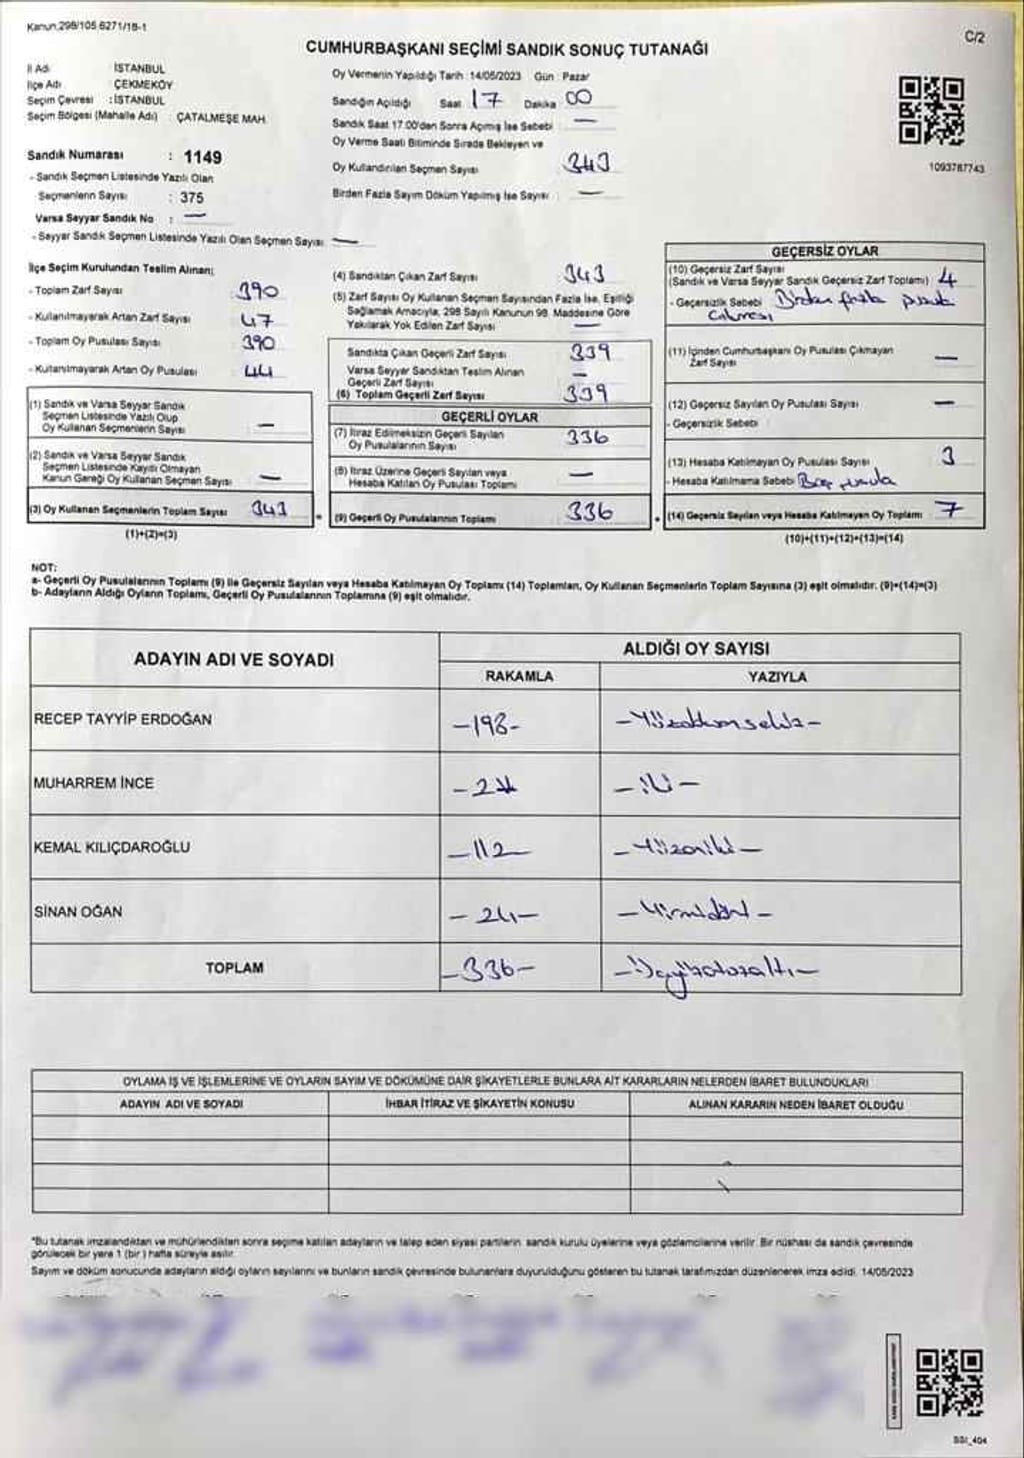 Kanun.298/105.6271/18-1
C/2
CUMHURBAŞKANI SEÇİMİ SANDIK SONUÇ TUTANAĞI
İl Adı : İSTANBUL
İlçe Adı : ÇEKMEKÖY
Seçim Çevresi : İSTANBUL
Seçim Bölgesi (Mahalle Adı) : ÇATALMEŞE MAH.
Sandık Numarası : 1149
- Sandık Seçmen Listesinde Yazılı Olan
Seçmenlerin Sayısı : 375
Varsa Seyyar Sandık No : —
- Seyyar Sandık Seçmen Listesinde Yazılı Olan Seçmen Sayısı: —
Oy Vermenin Yapıldığı Tarih : 14/05/2023 Gün : Pazar
Sandığın Açıldığı Saat 17 Dakika 00
Sandık Saat 17.00'den Sonra Açılmış İse Sebebi : —
Oy Verme Saati Bitiminde Sırada Bekleyen ve
Oy Kullandırılan Seçmen Sayısı : 343
Birden Fazla Sayım Döküm Yapılmış İse Sayısı : —
1093787743
İlçe Seçim Kurulundan Teslim Alınan;
- Toplam Zarf Sayısı : 390
- Kullanılmayarak Artan Zarf Sayısı : 47
- Toplam Oy Pusulası Sayısı : 390
- Kullanılmayarak Artan Oy Pusulası : 44
(1) Sandık ve Varsa Seyyar Sandık
Seçmen Listesinde Yazılı Olup
Oy Kullanan Seçmenlerin Sayısı : —
(2) Sandık ve Varsa Seyyar Sandık
Seçmen Listesinde Kaydı Olmayan
Kanun Gereği Oy Kullanan Seçmen Sayısı : —
(3) Oy Kullanan Seçmenlerin Toplam Sayısı : 343
(1)+(2)=(3)
(4) Sandıktan Çıkan Zarf Sayısı : 343
(5) Zarf Sayısı Oy Kullanan Seçmen Sayısından Fazla İse, Eşitliği
Sağlamak Amacıyla, 298 Sayılı Kanunun 98. Maddesine Göre
Yakılarak Yok Edilen Zarf Sayısı : —
Sandıkta Çıkan Geçerli Zarf Sayısı : 339
Varsa Seyyar Sandıktan Teslim Alınan
Geçerli Zarf Sayısı : —
(6) Toplam Geçerli Zarf Sayısı : 339
GEÇERLİ OYLAR
(7) İtiraz Edilmeksizin Geçerli Sayılan
Oy Pusulalarının Sayısı : 336
(8) İtiraz Üzerine Geçerli Sayılan veya
Hesaba Katılan Oy Pusulası Toplamı : —
(9) Geçerli Oy Pusulalarının Toplamı : 336
GEÇERSİZ OYLAR
(10) Geçersiz Zarf Sayısı
(Sandık ve Varsa Seyyar Sandık Geçersiz Zarf Toplamı) : 4
- Geçersizlik Sebebi : Birden fazla pusula
çıkması
(11) İçinden Cumhurbaşkanı Oy Pusulası Çıkmayan
Zarf Sayısı : —
(12) Geçersiz Sayılan Oy Pusulası Sayısı : —
- Geçersizlik Sebebi
(13) Hesaba Katılmayan Oy Pusulası Sayısı : 3
- Hesaba Katılmama Sebebi : Boş pusula
(14) Geçersiz Sayılan veya Hesaba Katılmayan Oy Toplamı : 7
(10)+(11)+(12)+(13)=(14)
NOT:
a- Geçerli Oy Pusulalarının Toplamı (9) ile Geçersiz Sayılan veya Hesaba Katılmayan Oy Toplamı (14) Toplamları, Oy Kullanan Seçmenlerin Toplam Sayısına (3) eşit olmalıdır. (9)+(14)=(3)
b- Adayların Aldığı Oyların Toplamı, Geçerli Oy Pusulalarının Toplamına (9) eşit olmalıdır.
ADAYIN ADI VE SOYADI
ALDIĞI OY SAYISI
RAKAMLA YAZIYLA
RECEP TAYYİP ERDOĞAN -198- -Yüzdoksansekiz-
MUHARREM İNCE -2- -iki-
KEMAL KILIÇDAROĞLU -112- -Yüzoniki-
SİNAN OĞAN -24- -Yirmidört-
TOPLAM -336- -Üçyüzotuzaltı-
OYLAMA İŞ VE İŞLEMLERİNE VE OYLARIN SAYIM VE DÖKÜMÜNE DAİR ŞİKAYETLERLE BUNLARA AİT KARARLARIN NELERDEN İBARET BULUNDUKLARI
ADAYIN ADI VE SOYADI İHBAR İTİRAZ VE ŞİKAYETİN KONUSU ALINAN KARARIN NEDEN İBARET OLDUĞU
*Bu tutanak imzalandıktan ve mühürlendikten sonra seçime katılan adayların ve talep eden siyasi partilerin sandık kurulu üyelerine veya gözlemcilerine verilir. Bir nüshası da sandık çevresinde
görülecek bir yere 1 (bir) hafta süreyle asılır.
Sayım ve döküm sonucunda adayların aldığı oyların sayılarını ve bunların sandık çevresinde bulunanlara duyurulduğunu gösteren bu tutanak tarafımızdan düzenlenerek imza edildi. 14/05/2023
SSI_404